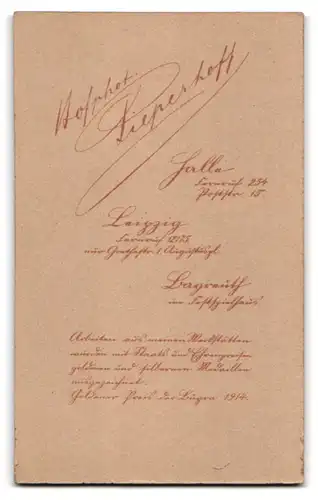 Hofphot.
Pieperhoff
Halle
Fernruf 254
Poststr. 15
Leipzig
Fernruf
nur Goethestr. 1. Augustuspl.
Bayreuth
im Festspielhaus
Arbeiten aus meinen Werkstätten
wurden mit Staats und Ehrenpreisen
goldenen und silbernen Medaillen
ausgezeichnet.
Goldener Preis der Bugra 1914.